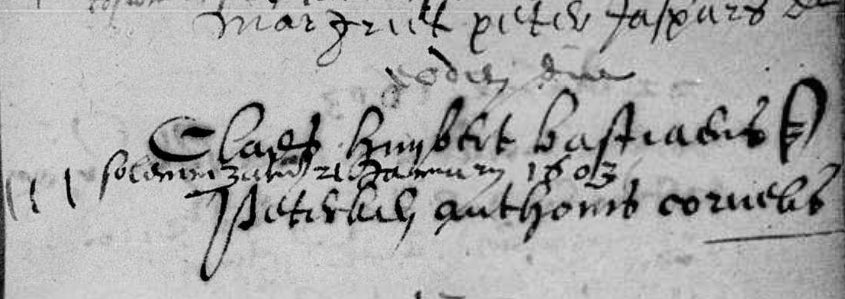 Margriet peter Jaspars
eodem die
Claes huybert bastiaens
solemnizatum 21 January 1603
Peterken anthonis cornelis